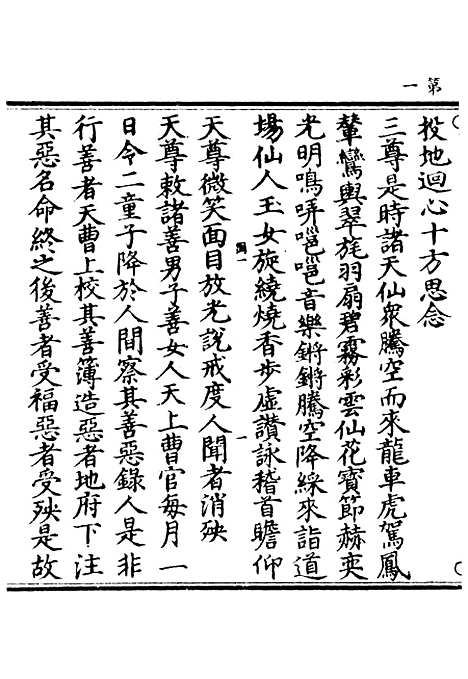 第一
投地迴心十方思念
三尊是時諸天仙衆騰空而來龍車虎駕鳳
輦鸞輿翠旄羽扇碧霧彩雲仙花寶節赫奕
光明鳴哢嗈嗈音樂鏘鏘騰空降綵來詣道
場仙人玉女旋繞燒香步虛讚詠稽首瞻仰
天尊微笑面目放光說戒度人聞者消殃
天尊敕諸善男子善女人天上曹官每月一
日令二童子降於人間察其善惡錄人是非
行善者天曹上校其善簿造惡者地府下注
其惡名命終之後善者受福惡者受殃是故